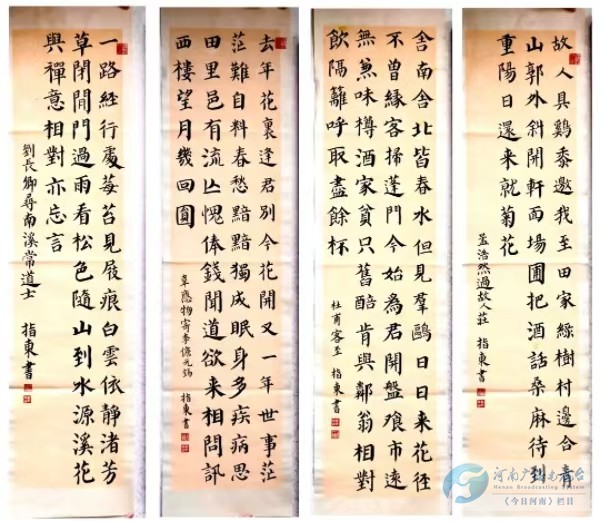 故人具鷄黍邀我至田家綠樹村邊合青
山郭外斜開軒面場圃把酒話桑麻待到
重陽日還来就菊花
孟浩然過故人莊 指東書
舍南舍北皆春水但見羣鷗日日来花徑
不曾緣客掃蓬門今始爲君開盤飧市遠
無兼味樽酒家貧只舊醅肯與鄰翁相對
飲隔籬呼取盡餘杯
杜甫客至 指東書
去年花裏逢君別今花開又一年世事茫
茫難自料春愁黯黯獨成眠身多疾病思
田里邑有流亡愧俸錢聞道欲来相問訊
西樓望月幾回圓
韋應物寄李儋元錫 指東書
一路經行處莓苔見屐痕白雲依静渚芳
草閉閒門過雨看松色隨山到水源溪花
與禪意相對亦忘言
劉長卿尋南溪常道士 指東書
河南广播电视台
Henan Broadcasting System
《今日河南》栏目